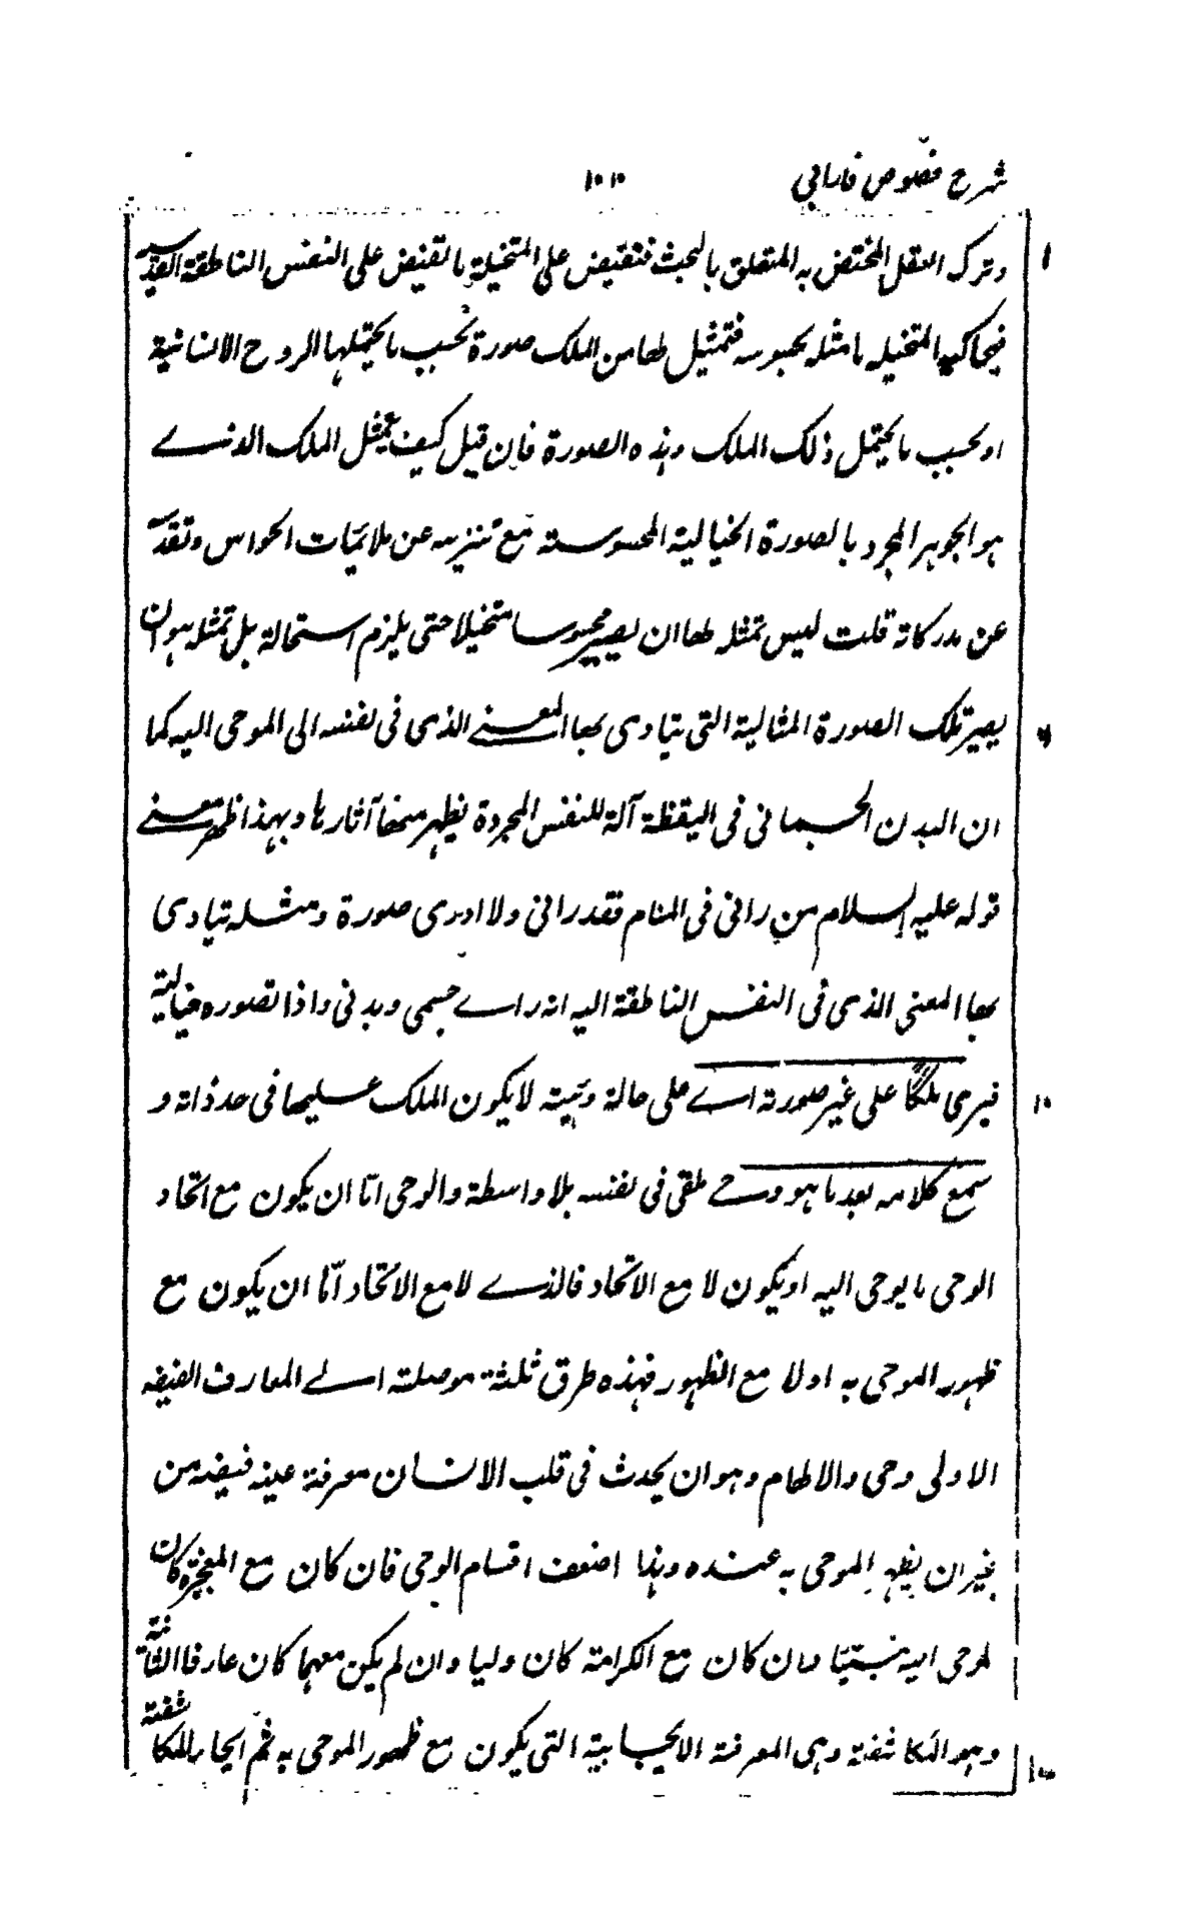 شرح فصوص فارابي
١٠١٠
وترك العقل المختص به المتعلق بالبحث فتفيض على المتخيلة ما تفيض على النفس الناطقة القدسية
فيحاكيه المتخيله بامثله محسوسه فتمثيل لها من الملك صورة بحسب ما يحتملها الروح الانسانية
او بحسب ما يحتمل ذلك الملك وهذه الصورة فان قيل كيف يمثل الملك الذے
هو الجوهر المجرد بالصورة الخيالية المحسوسته مع تنزيهه عن ملائمات الحواس وتقدسه
عن مدركاته قلت ليس تمثله لها ان يصير محسوسا متخيلا حتى يلزم استحالة بل تمثله هو ان
يصير تلك الصورة المثالية التى يتادى بها المعنے الذى فى نفسه الى الموحى اليه كما
ان البدن الجسمانى فى اليقظة آلة للنفس المجردة يظهر منها آثارها وبهذا ظهر معنے
قوله عليه السلام من رانى فى المنام فقد رانى ولا ادرى صورة ومثله تيادى
بها المعنى الذى فى النفس الناطقة اليه انه راے جسمى وبدنى واذا تصوره خيالية
فيرى ملكًا على غير صورته اے على حالة وهيئة لا يكون الملك عليها فى حد ذاته و
سمع كلامه بعد ما هو وحے ملقى فى نفسه بلا واسطة والوحى امّا ان يكون مع اتحاد
الوحى ما يوحى اليه او يكون لا مع الاتحاد فالذے لا مع الاتحاد امّا ان يكون مع
ظهور الموحى به اولا مع الظهور فهذه طرق ثلثة موصلته الے المعارف
الاولى وحى والالهام وهو ان يحدث فى قلب الانسان معرفة من
غير ان يظهر الموحى به عنده وهذا اضعف اقسام الوحى فان كان مع المعجزة كان
الموحى اليه نبيّا وان كان مع الكرامة كان وليا وان لم يكن معهما كان عارفا الثانية
وهو المكاشفة وهى المعرفة التى يكون مع ظهور الموحى به ثم المكاشفة
١
١٠